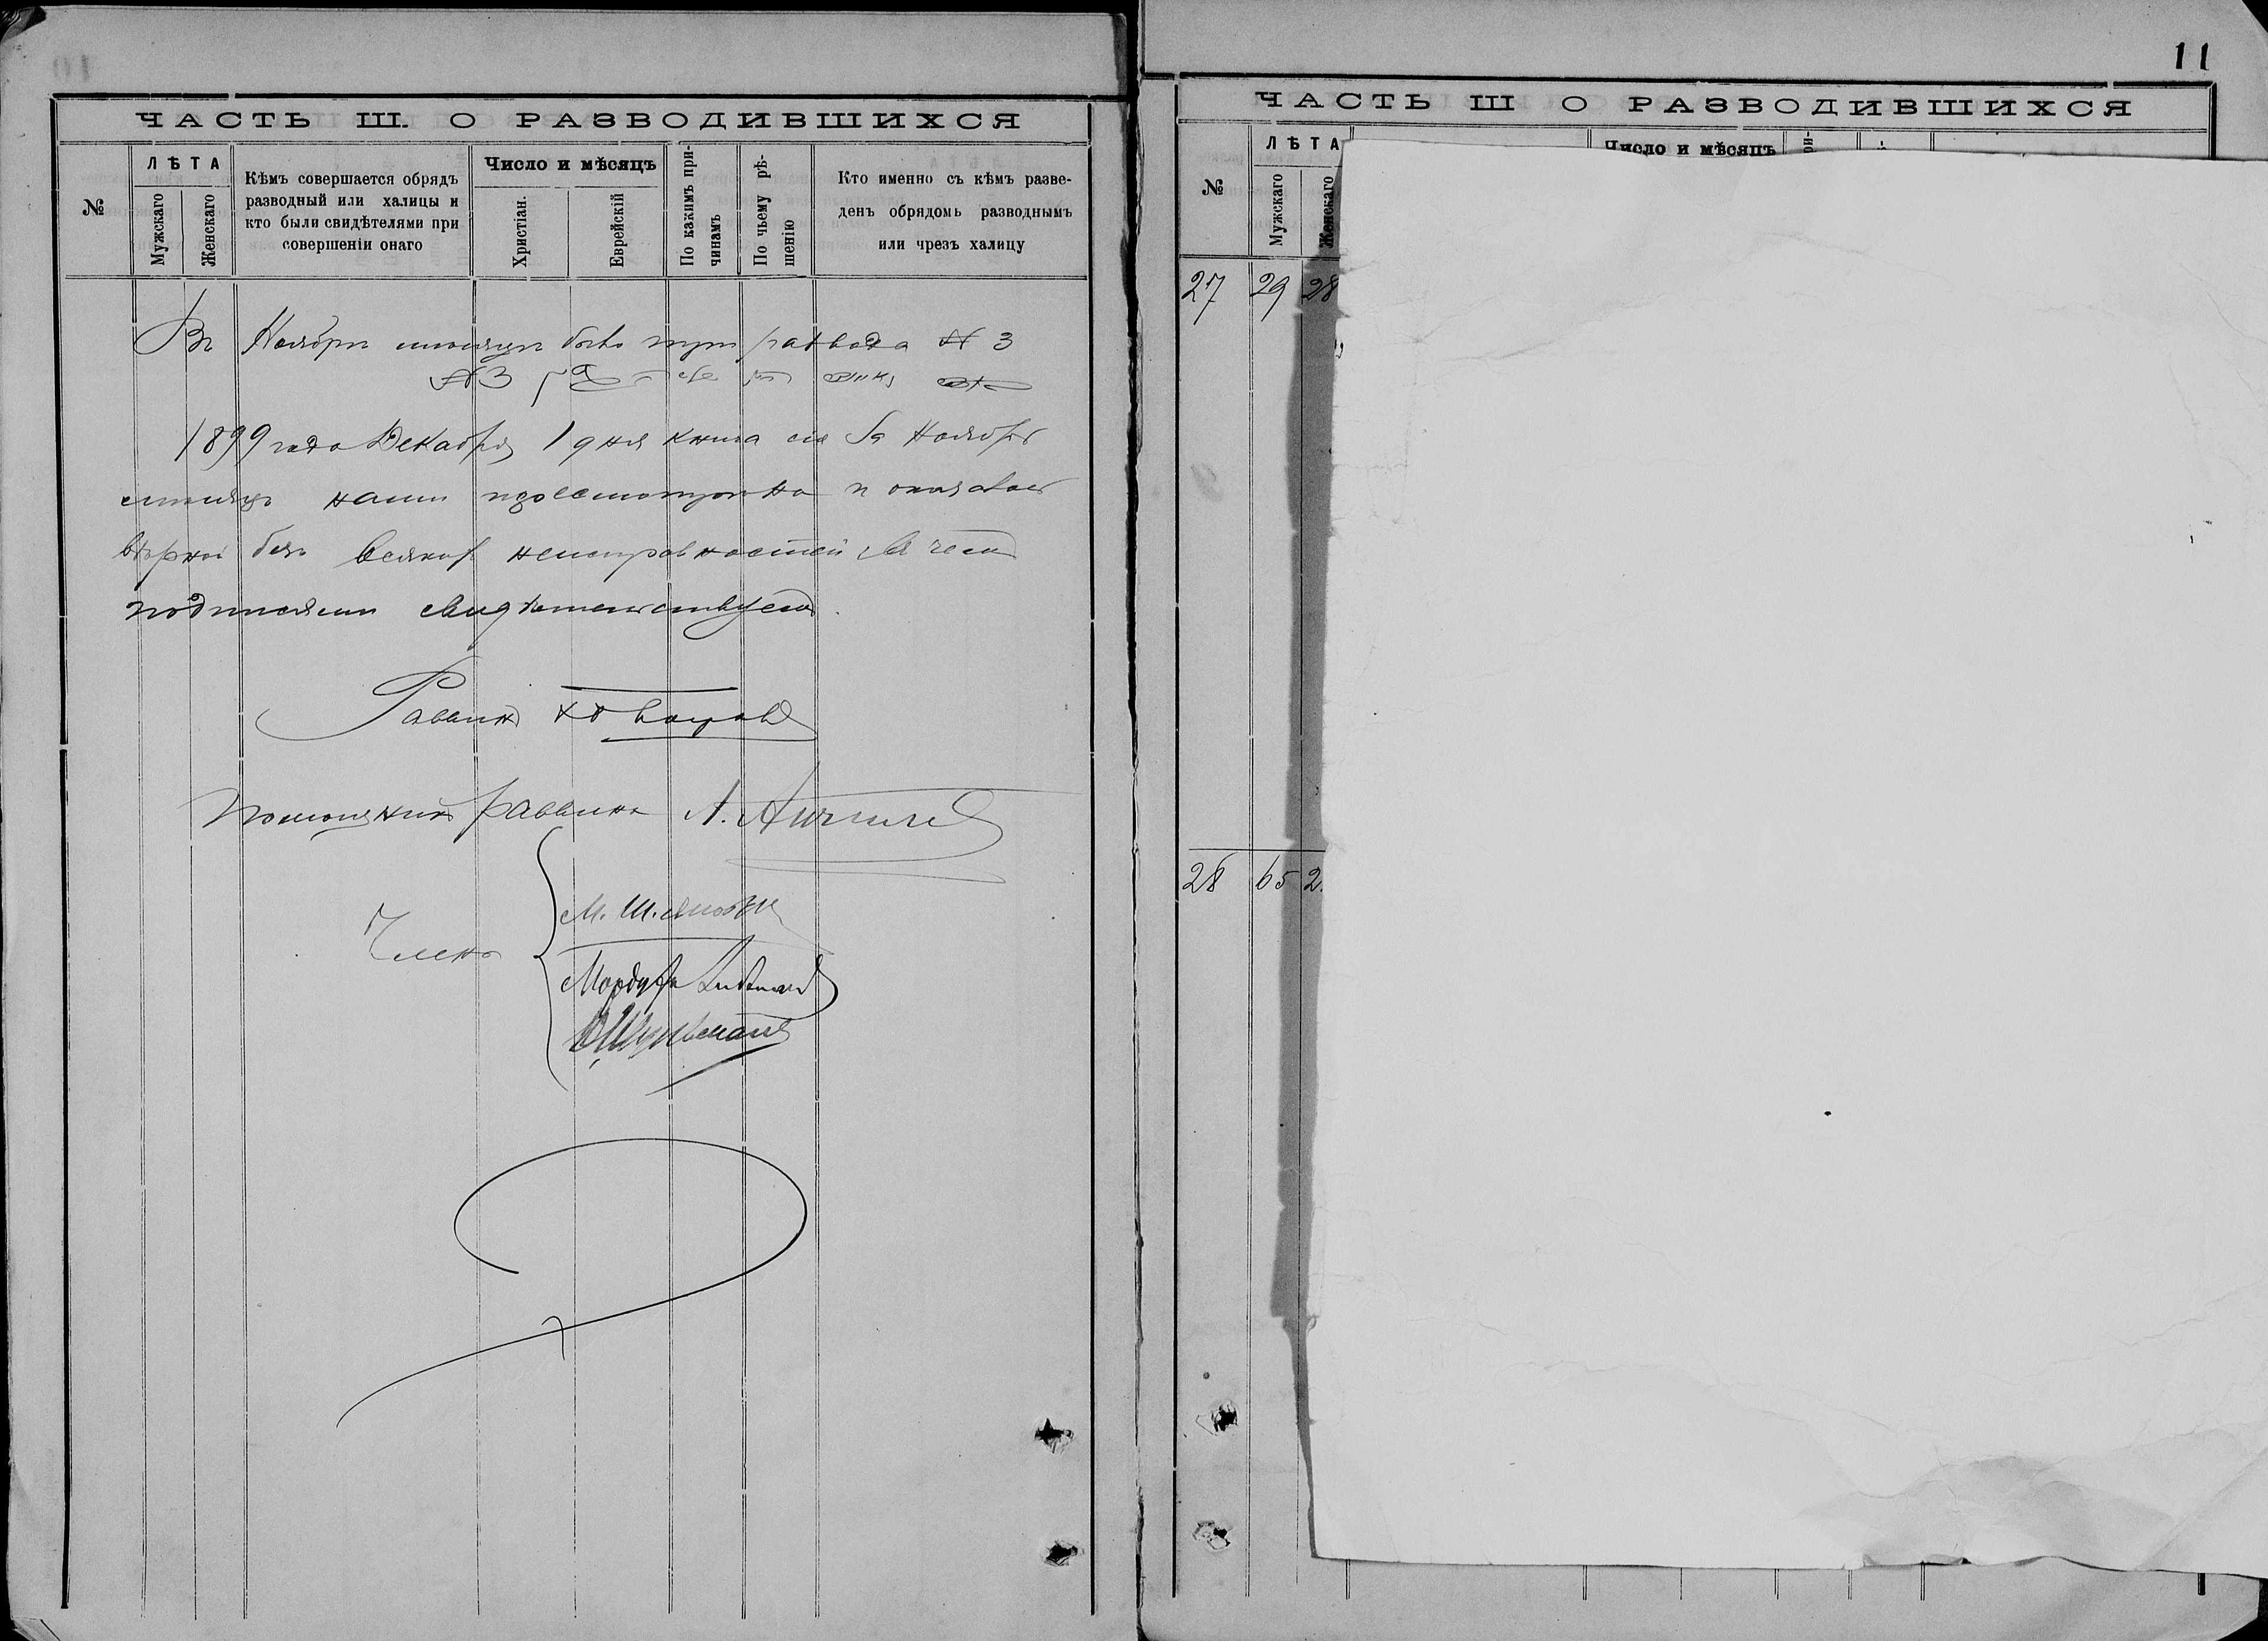 ЧАСТЬ III. О РАЗВОДИВШИХСЯ
№
ЛѢТА
Мужскаго
Женскаго
Кѣмъ совершается обрядъ
разводный или халицы и
кто были свидѣтелями при
совершеніи онаго
Число и мѣсяцъ
Христіан.
Еврейскій
По какимъ при-
чинамъ
По чьему рѣ-
шенію
Кто именно съ кѣмъ разве-
денъ обрядомъ разводнымъ
или чрезъ халицу
Въ Ноябрѣ мѣсяцѣ было три развода № 3
№ 3
1899 года Декабря 1 дня книга сія за Ноябрь
мѣсяцъ нами просмотрена и оказалась
вѣрной безъ всякихъ неисправностей, въ чемъ
подписями свидѣтельствуемъ.
Раввинъ
Помощникъ Раввина А.
Члены
М. Ш.
Мордухъ
Шульманъ
11
ЧАСТЬ III О РАЗВОДИВШИХСЯ
№
ЛѢТА
Мужскаго
Женскаго
Число и мѣсяцъ
27 29 28
28 65 2